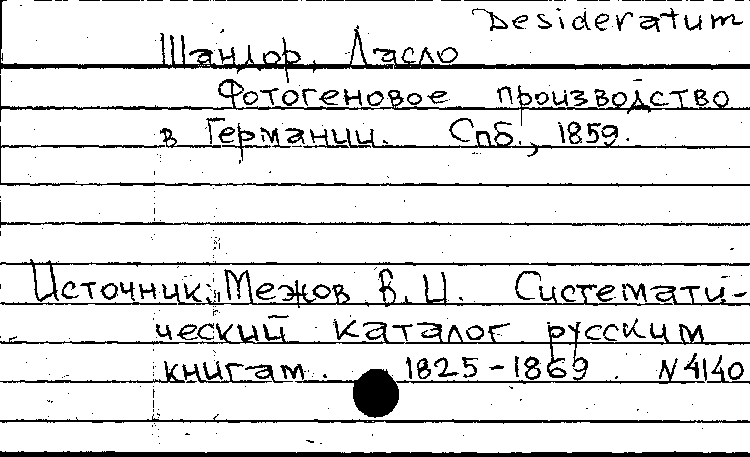 Desideratum
Шандор, Ласло
Фотогеновое производство
в Германии. Спб., 1859.
Источник: Межов В. И. Системати-
ческий каталог русским
книгам. 1825-1869. N 4140